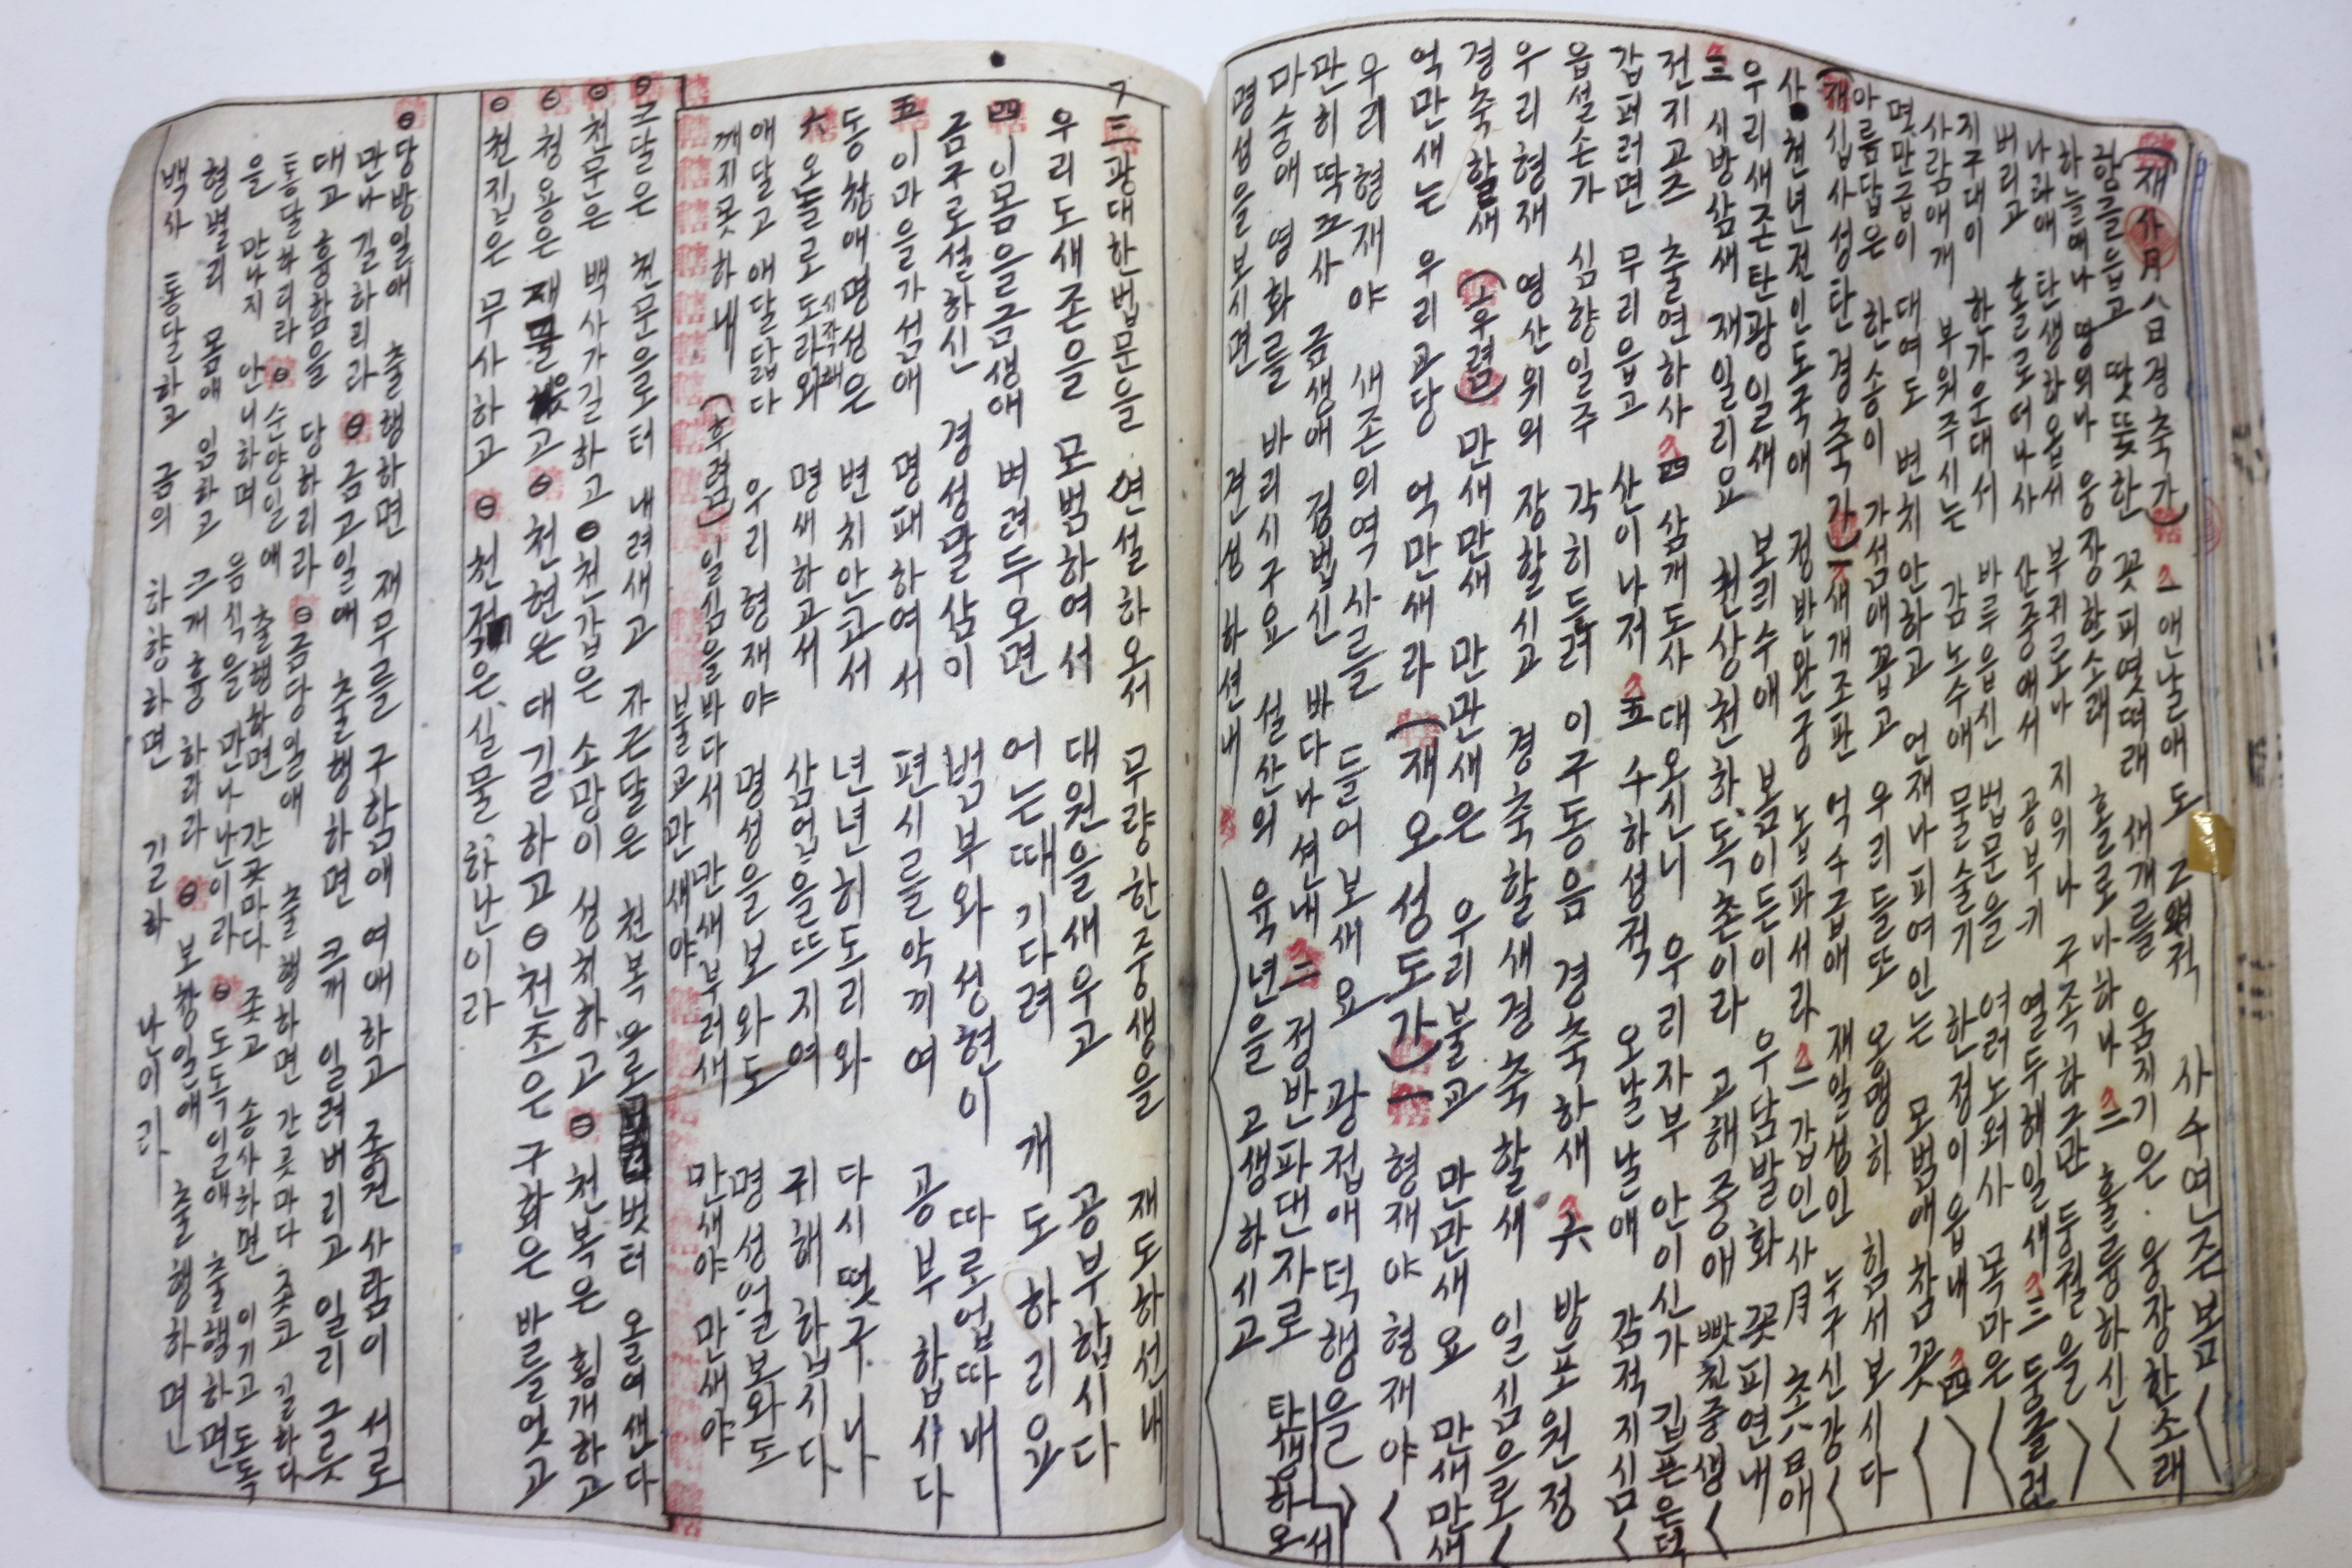 (재사月八日경축가) 一 앤날애도 사수연준봄
땃뜻한 꼿피엿떠래 새개를 움지기은. 웅장한소래
하늘애나 땅의나 웅장한소래 홀로나하나 二 훌륭하신
나라애 탄생하옵서 부귀로나 지위나 구족하구만 두궐을
버리고 홀로떠나사 산중애서 공부기 열두해일새 三 둥글런
지구대이 한가운대서 바루읍신 법문을 여러노와사 목마은
사람애개 부워주시는 감노수애 물술기 한정이읍내 四
몃만급이 대여도 변치안하고 언재나피여인는 모범애참꼿
아름답은 한송이 가섬애꼽고 우리들또 용맹히 힘서보시다
(재십사성단경축가) 一 새개조판 억수급애 재일성인 누구신강
사천년전인도국애 정반완궁 노파서라 二 갑인사月 초八日애
우리새존탄광일새 보리수애 봄이든이 우담발화 꼿피연내
三 시방삼새 재일리요 천상천하 독존이라 고해중애 빳친중생
전지고즈 출연하사 四 삼개도사 대오신니 우리자부 안이신가 깁픈은덕
갑퍼러면 무리읍고 산이나저 五 수하성적 오날날애 감적지심
읍설손가 심향일주 각히들려 이구동음 경축하새 六 방포원정
우리형재 영산위의 장할시고 경축할새경축할새 일심으로
경축할새 (후렴) 만새만새 만만새은 우리불교 만만새요 만새만새
억만새는 우리교당 억만새라 (재오성도가) 一 형재야 형재야
우리형재야 새존의역사를 들어보새요 광접애덕행을 세
만히딱그사 금생애 정법신 바다나션내 二 정반파대자로 탄생하오
마승애 영화를 바리시구요 설산의 육년을 고생하시고
명성을보시면 견성 하션내
三 광대한법문을 연설하오서 무량한중생을 재도하션내
우리도새존을 모범하여서 대원을새우고 공부합시다
四 이몸을금생애 버려두오면 어는때기다려 개도하리요
금구로설하신 경성말삼이 범부와성현이 따로업따내
五 이마을가섬애 명패하여서 편시를악끼여 공부합시다
동청애명성은 변치안고서 년년히도라와 다시떳구나
六 오늘로도라와 시작해 명새하고서 삼업을뜨지여 귀해하압시다
애달고 애달답다 우리형재야 명성을보와도 명성얼보와도
깨지못하내 (후렴) 일심을바다서 만새부러새 만새야만새야
불교만새야
모달은 천문으로터 내려새고 자근달은 천복으로 벗터 올여샌다
천문은 백사가길하고 천갑은 소망이 성취하고 천복은 횡개하고
청용은 재물 고 천현은 대길하고 천조은 구화은 바들엇고
천진은 무사하고 천적은 실물하난이라
당방일애 출행하면 재무를 구함애 여애하고 조흔사람이 서로
만나길하리라 금고일애 출행하면 크개 일려버리고 일리 그릇
대고 흉함을 당하리라 금당일애 출행하면 간곳마다 좃고 길하다
통달하리라 순양일애 출행하면 간곳마다 좃고 송사하면 이기고 도독
을 만나지 안니하며 음식을 만나난이라 도독일애 출행하면
형벌리 몸애 임하고 크개흉하라라 보창일애 출행하며
백사 통달하고 금의 하향하면 길하 난이라